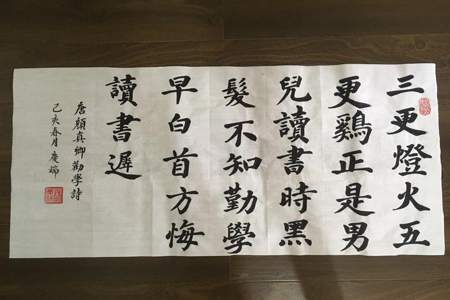 三更燈火五
更鷄正是男
兒讀書時黑
髮不知勤學
早白首方悔
讀書遲
唐顏真卿勸學詩
己亥春月慶